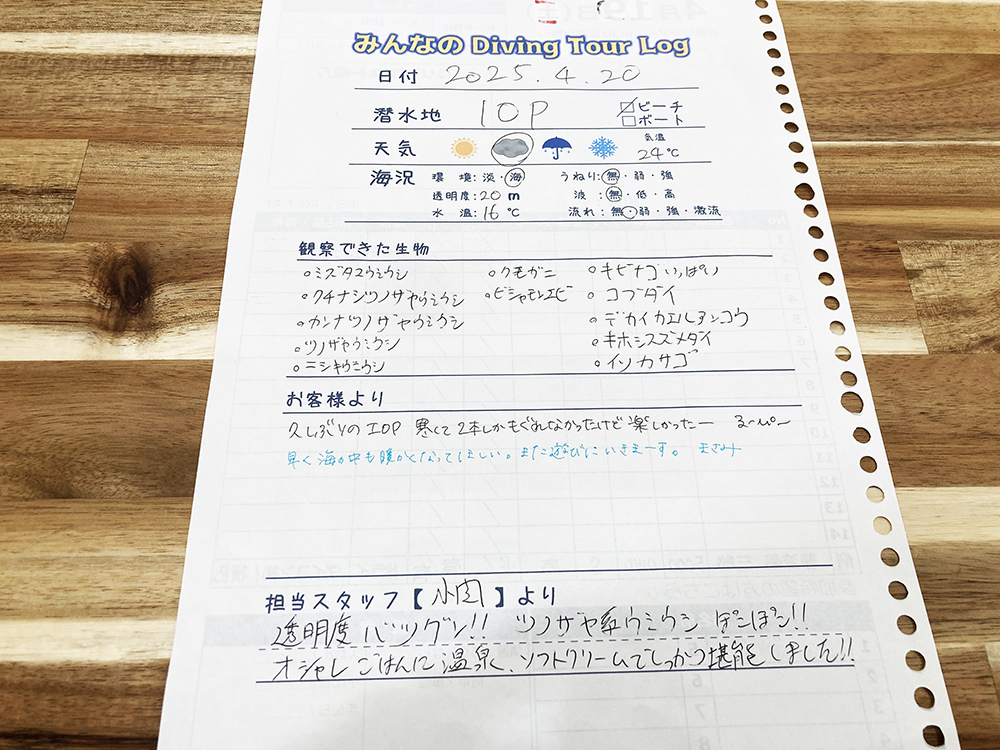 みんなの Diving Tour Log
日付 2025.4.20
潜水地 IOP ☑ビーチ
□ボート
天気 気温
24℃
海況 環境:淡・海 うねり:無・弱・強
透明度:20 m 波:無・低・高
水温:16 ℃ 流れ:無・弱・強・激流
観察できた生物
○ミズタマウミウシ ○クモガニ ○キビナゴいっぱい
○クチナシツノザヤウミウシ ○ビシャモンエビ ○コブダイ
○カンナツノザヤウミウシ ○デカイカエルアンコウ
○ツノザヤウミウシ ○キホシスズメダイ
○ニシキウミウシ ○イソカサゴ
お客様より
久しぶりのIOP 寒くて2本しかもぐれなかったけど楽しかったー るーぴー
早く海の中も暖かくなってほしい。また遊びにいきまーす。 まさみ
担当スタッフ【小図】より
透明度バツグン!! ツノザヤ系ウミウシ ぽこぽこ!!
オシャレごはんに温泉、ソフトクリームでしっかり堪能しました!!